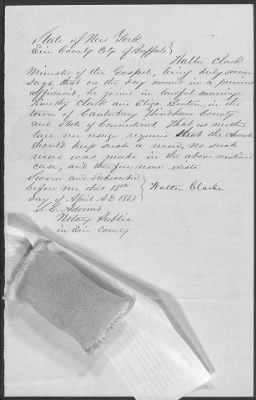 State of New York
Erie County City of Buffalo }
Walter Clark
Minister of the Gospel, being duly sworn
says, that on the day named in a previous
affidavit, he joined in lawful marriage
Timothy Clark and Eliza Benton, in the
town of Canterbury Windham County
and State of Connecticut. That as neither
law nor usage required that the Church
should keep such a record, no such
record was made in the above mentioned
case, and therefore none exists
Sworn and Subscribed
before me this 18th } Walter Clarke
day of April A.D 1863
Notary Public
in Erie County